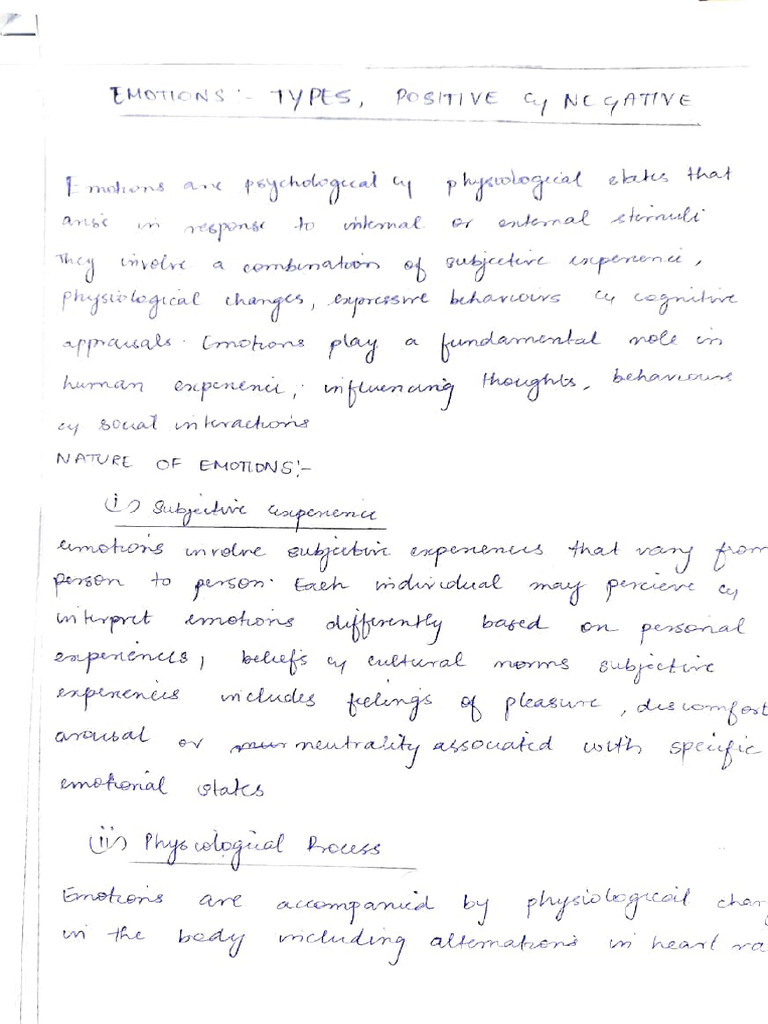 EMOTIONS:- TYPES, POSITIVE & NEGATIVE
Emotions are psychological & physiological states that
arise in response to internal or external stimuli
They involve a combination of subjective experience,
physiological changes, expressive behaviours & cognitive
appraisals. Emotions play a fundamental role in
human experience, influencing thoughts, behaviours
& social interactions
NATURE OF EMOTIONS:-
(i) Subjective experience
emotions involve subjective experiences that vary from
person to person. Each individual may percieve &
interpret emotions differently based on personal
experiences, beliefs & cultural norms subjective
experiences includes feelings of pleasure, discomfort
arousal or neutrality associated with specific
emotional states
(ii) Physiological Process
Emotions are accompanied by physiological
in the body including alternations in heart